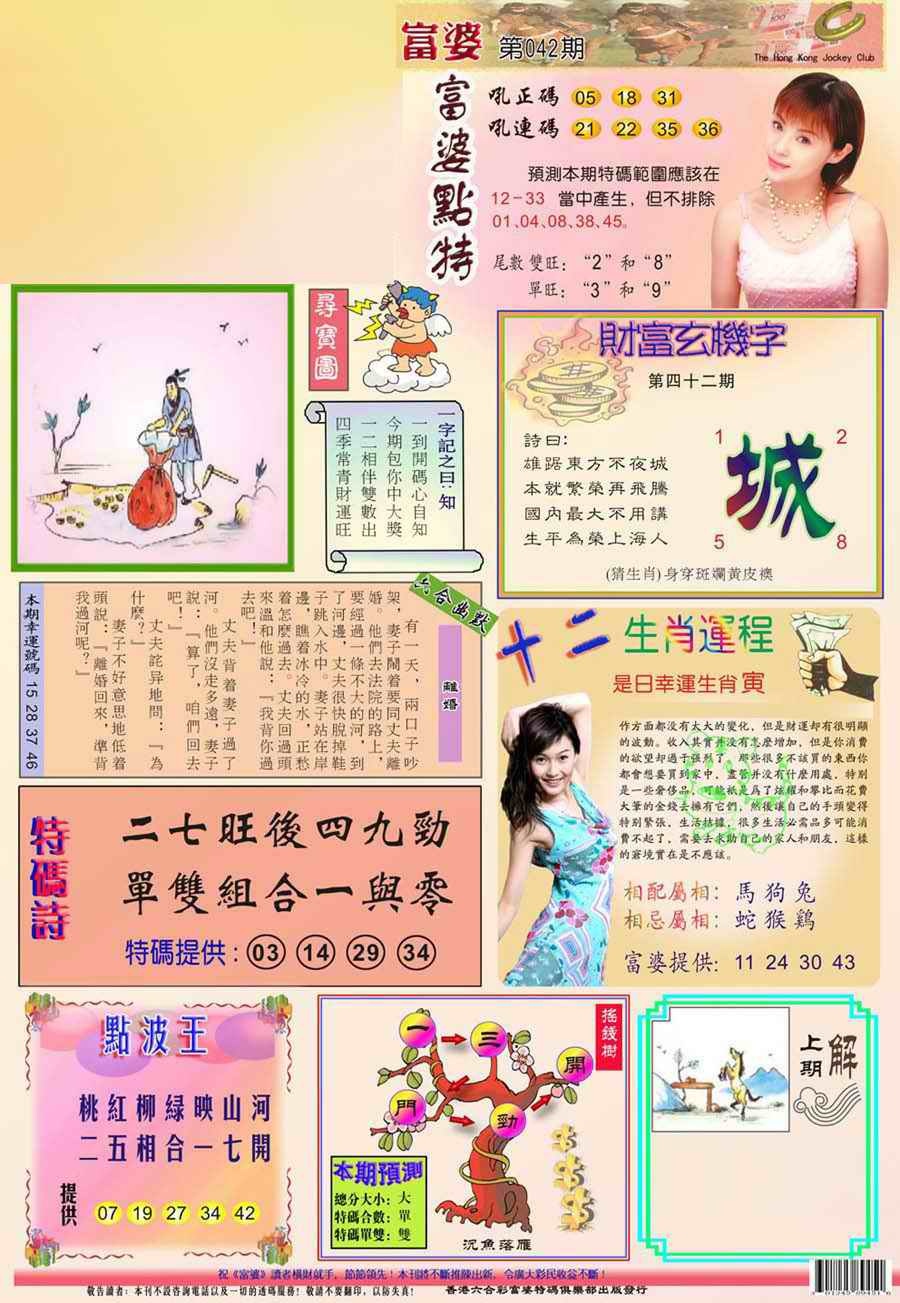 富婆 第042期
The Hong Kong Jockey Club
富婆點特
吼正碼 05 18 31
吼連碼 21 22 35 36
預測本期特碼範圍應該在
12-33 當中產生，但不排除
01、04、08、38、45。
尾數雙旺：“2”和“8”
單旺：“3”和“9”
尋寶圖
一字記之曰：知
一到開碼心自知
今期包你中大獎
一二相伴雙數出
四季常青財運旺
財富玄機字
第四十二期
詩曰：
雄踞東方不夜城
本就繁榮再飛騰
國內最大不用講
生平為榮上海人
1 2
城
5 8
(猜生肖)身穿斑斕黃皮襖
六合幽默
離婚
有一天，兩口子吵
架，妻子鬧着要同丈夫離
婚。他們去法院的路上，
要經過一條不大的河，到
了河邊，丈夫很快脫掉鞋
子跳入水中。妻子站在岸
邊，瞧着冰冷的水，正愁
着怎麼過去。丈夫回過頭
來溫和他說：『我背你過
去吧！』
丈夫背着妻子過了
河。他們沒走多遠，妻子
說：『算了，咱們回去
吧！』
丈夫詫异地問：『為
什麼？』
妻子不好意思地低着
頭說：『離婚回來，準背
我過河呢？』
本期幸運號碼 15 28 37 46
十二生肖運程
是日幸運生肖寅
作方面都沒有太大的變化，但是財運却有很明顯
的波動。收入其實并沒有怎麼增加，但是你消費
的欲望却過于強烈了，那些很多不該買的東西你
都會想要買到家中，盡管并沒有什麼用處，特別
是一些奢侈品，可能衹是為了炫耀和攀比而花費
大筆的金錢去擁有它們，然後讓自己的手頭變得
特別緊張，生活拮據，很多生活必需品多可能消
費不起了，需要去求助自己的家人和朋友，這樣
的窘境實在是不應該。
相配屬相：馬狗兔
相忌屬相：蛇猴鷄
富婆提供：11 24 30 43
特碼詩
二七旺後四九勁
單雙組合一與零
特碼提供：03 14 29 34
點波王
桃紅柳綠映山河
二五相合一七開
提供 07 19 27 34 42
搖錢樹
一 三
開
門
勁
本期預測
總分大小：大
特碼合數：單
特碼單雙：雙
沉魚落雁
上期解
祝《富婆》讀者橫財就手，節節領先！本刊將不斷推陳出新，令廣大彩民收益不斷！
敬告讀者：本刊不設咨詢電話以及一切的透碼服務！敬請不要翻印，以防失真！ 香港六合彩富婆特碼俱樂部出版發行